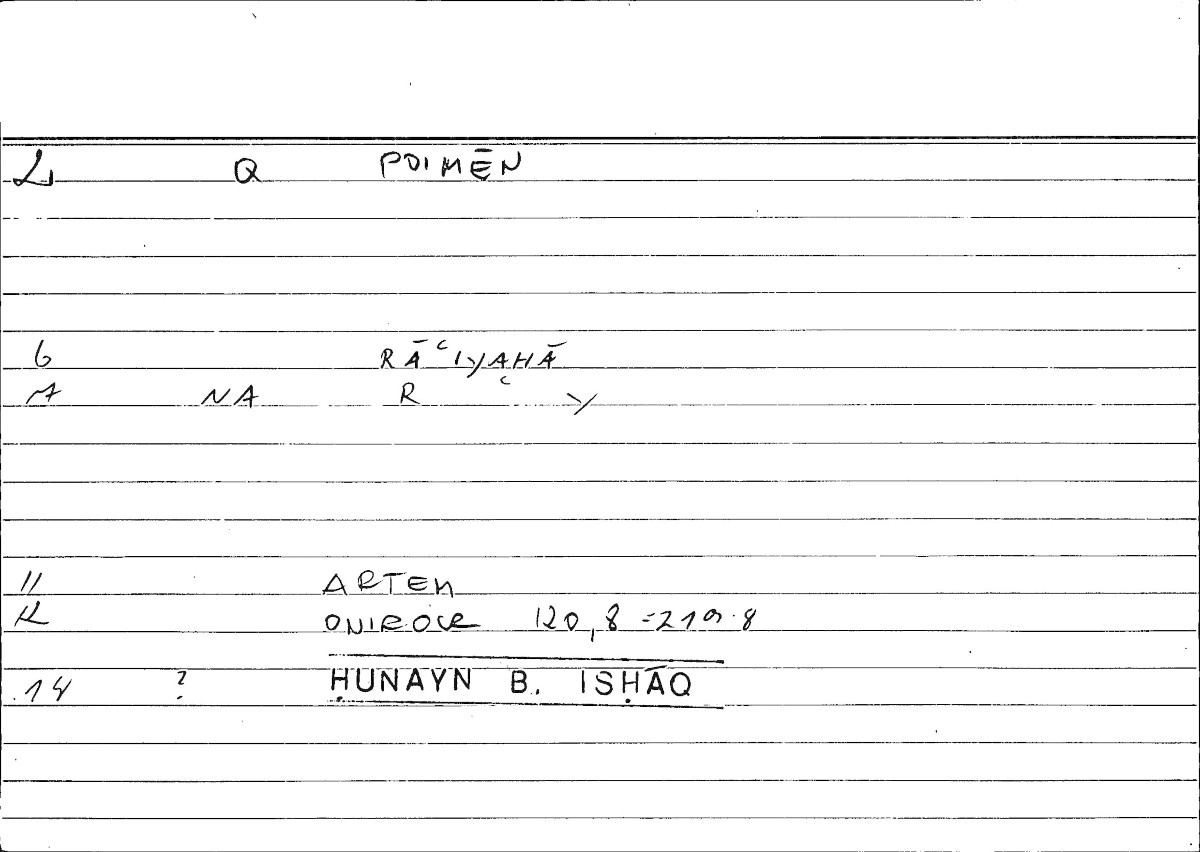 2 Q POIMĒN
6 RĀʿIYAHĀ
7 NA R ʿ Y
11 ARTEM
12 ONIROCR 120,8 = 219.8
14 ? ḤUNAYN B. ISḤĀQ